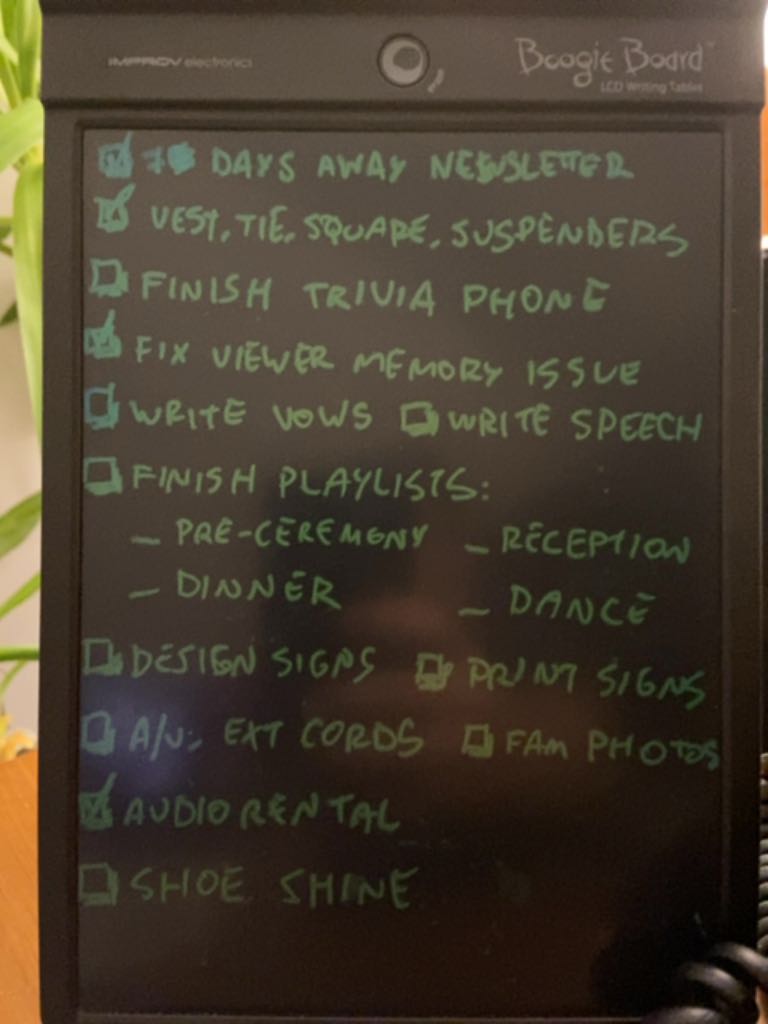 IMPROV electronics Boogie Board™
LCD Writing Tablet
☑ DAYS AWAY NEWSLETTER
☑ VEST, TIE, SQUARE, SUSPENDERS
☐ FINISH TRIVIA PHONE
☑ FIX VIEWER MEMORY ISSUE
☐ WRITE VOWS ☐ WRITE SPEECH
☐ FINISH PLAYLISTS:
– PRE-CEREMONY – RECEPTION
– DINNER – DANCE
☐ DESIGN SIGNS ☐ PRINT SIGNS
☐ A/V, EXT CORDS ☐ FAM PHOTOS
☑ AUDIO RENTAL
☐ SHOE SHINE